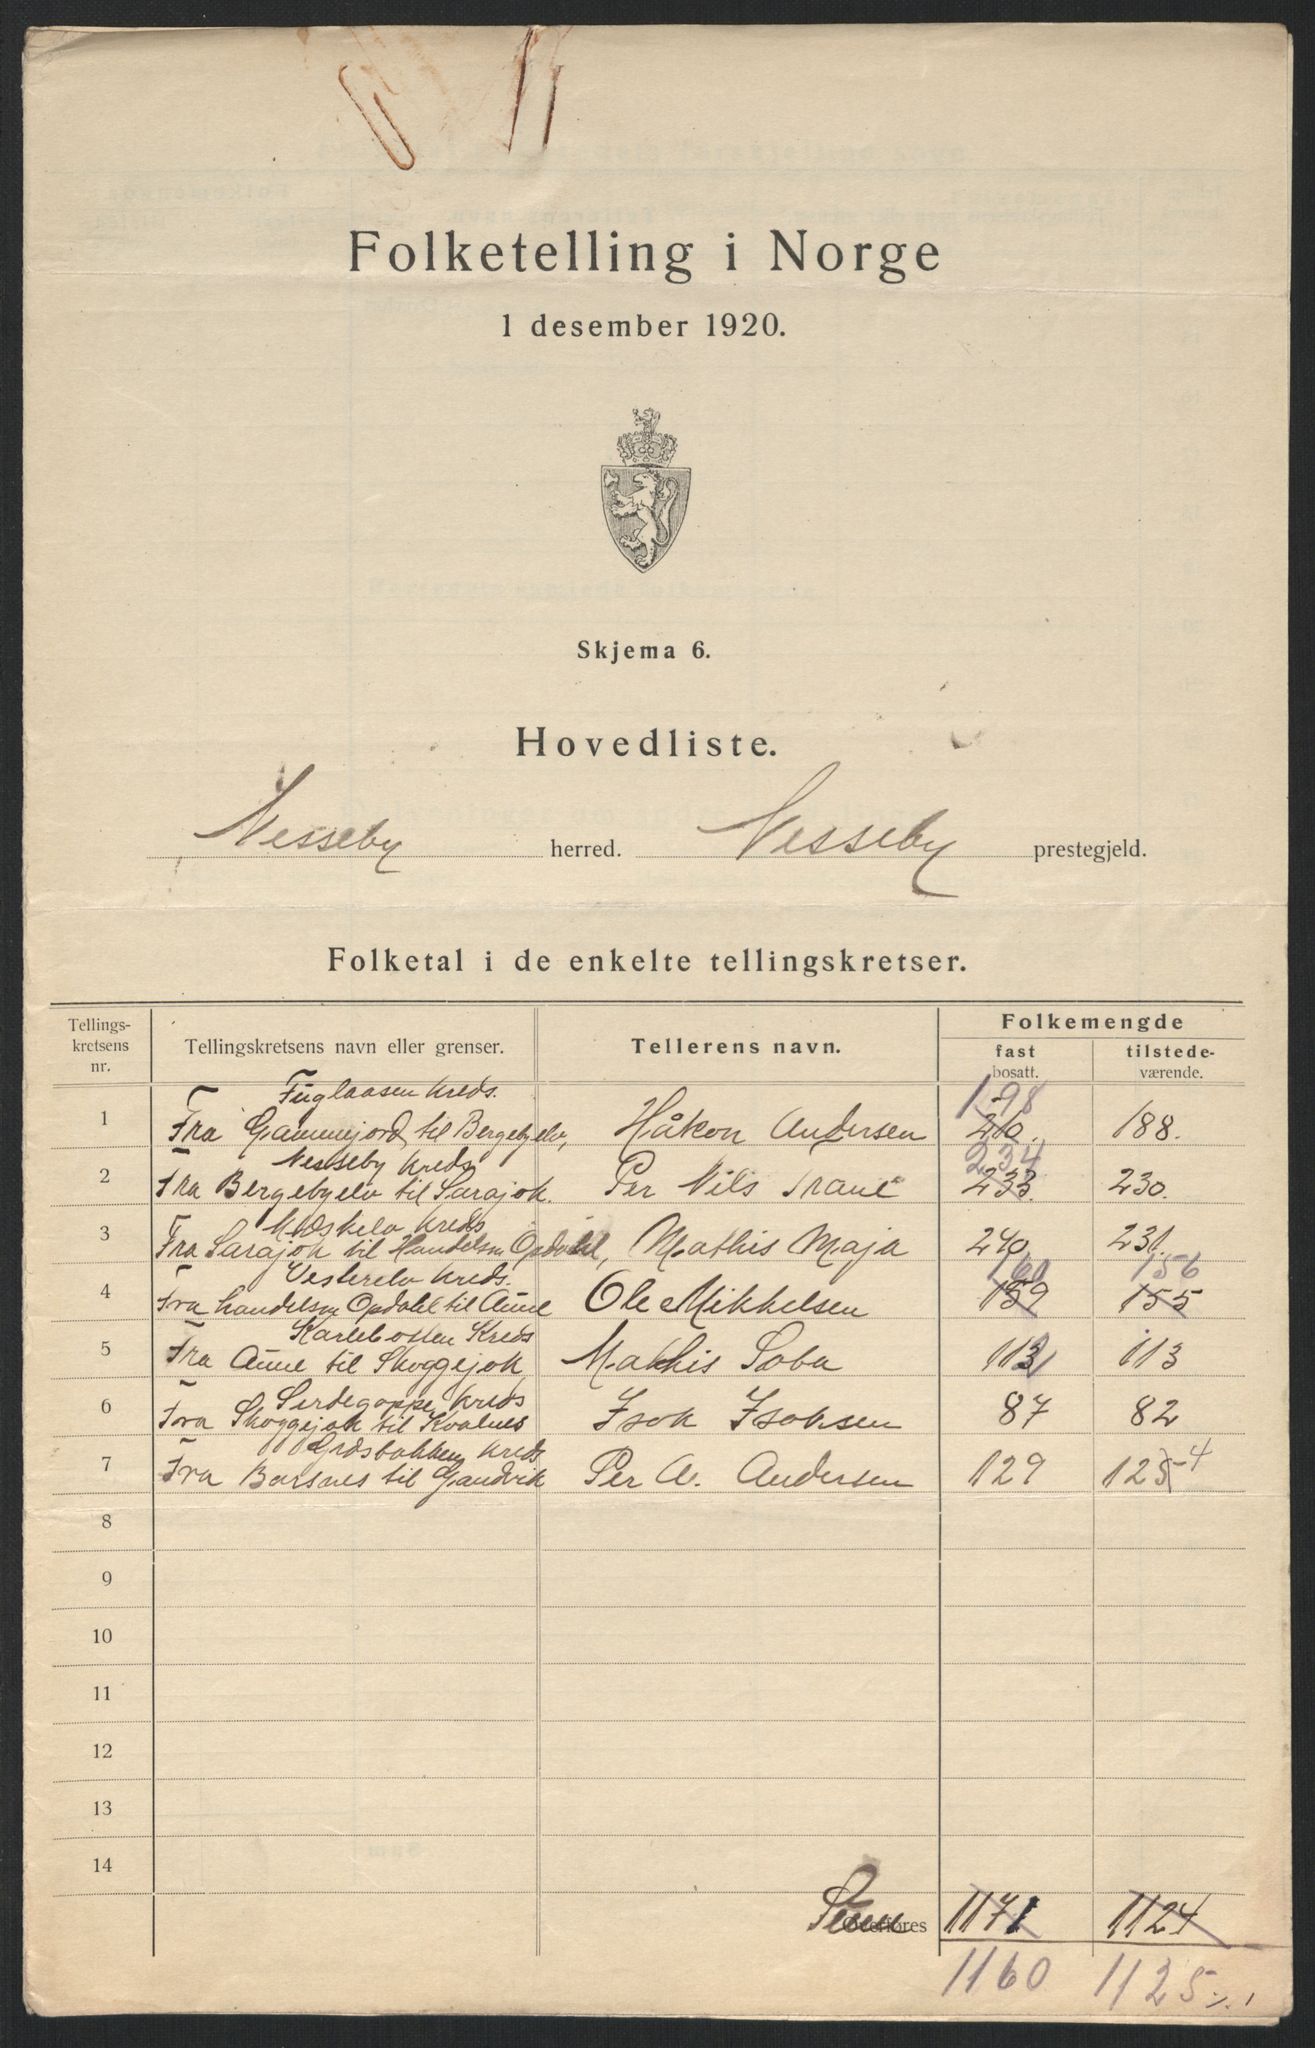 Folketelling i Norge
1 desember 1920.
Skjema 6.
Hovedliste.
Nesseby herred. Nesseby prestegjeld.
Folketal i de enkelte tellingskretser.
Tellings-
kretsens
nr.
Tellingskretsens navn eller grenser.
Tellerens navn.
Folkemengde
fast
bosatt.
tilstede-
værende.
Fuglaasen Kreds. 198
1 Fra Gammejord, til Bergebyelv, Håkon Andersen 210. 188.
Nesseby Kreds 234
2 Fra Bergebyelv til Sarajok. Per Nils Trane 233 230.
Mæskelv Kreds
3 Fra Sarajok til Handelsm Opdahl, Mathis Maja 240, 231.
Vesterelv Kreds. 160 156
4 Fra handelsm Opdahl til Aune Ole Mikkelsen 159 155
Karlebotten Kreds
5 Fra Aune til Skoggejok Mathis Soba 113
Sirdegoppe Kreds
6 Fra Skoggejok til Kvalnes Isok Isoksen 87 82
Græsbakken Kreds
7 Fra Barsnes til Gandvik Per A. Andersen 129 125 4
8
9
10
11
12
13
14
Overføres 1171 1124
1160 1125 ./. 1